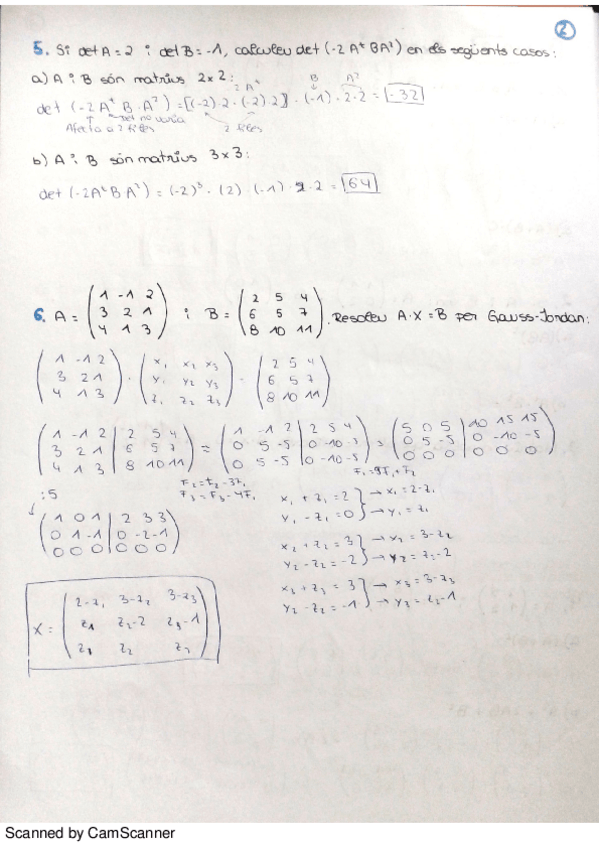 2
5. Si det A = 2 i det B = -1, calculeu det (-2 Aᵗ B A²) en els següents casos:
a) A i B són matrius 2x2:
2 Aᵗ B A²
det (-2 Aᵗ B · A²) = [(-2) · 2 · (-2) · 2] · (-1) · 2 · 2 = -32
det no varia
Afecta a 2 files 2 files
b) A i B són matrius 3x3:
det (-2 Aᵗ B A²) = (-2)³ · (2) · (-1) · 2 · 2 = 64
6. A = (1 -1 2 / 3 2 1 / 4 1 3) i B = (2 5 4 / 6 5 7 / 8 10 11). Resoleu A · X = B per Gauss-Jordan:
(1 -1 2 / 3 2 1 / 4 1 3) · (x₁ x₂ x₃ / y₁ y₂ y₃ / z₁ z₂ z₃) = (2 5 4 / 6 5 7 / 8 10 11)
(1 -1 2 | 2 5 4 / 3 2 1 | 6 5 7 / 4 1 3 | 8 10 11) = (1 -1 2 | 2 5 4 / 0 5 -5 | 0 -10 -5 / 0 5 -5 | 0 -10 -5) = (5 0 5 | 10 15 15 / 0 5 -5 | 0 -10 -5 / 0 0 0 | 0 0 0)
F₂ = F₂ - 3F₁
F₃ = F₃ - 4F₁
:5
(1 0 1 | 2 3 3 / 0 1 -1 | 0 -2 -1 / 0 0 0 | 0 0 0)
x₁ + z₁ = 2 → x₁ = 2 - z₁
y₁ - z₁ = 0 → y₁ = z₁
x₂ + z₂ = 3 → x₂ = 3 - z₂
y₂ - z₂ = -2 → y₂ = z₂ - 2
x₃ + z₃ = 3 → x₃ = 3 - z₃
y₃ - z₃ = -1 → y₃ = z₃ - 1
X = (2-z₁ 3-z₂ 3-z₃ / z₁ z₂-2 z₃-1 / z₁ z₂ z₃)
Scanned by CamScanner